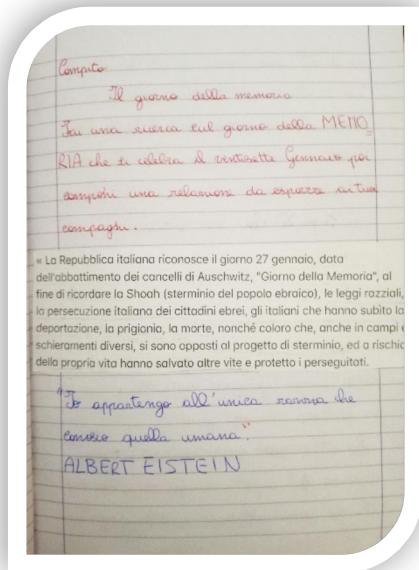 Compito
Il giorno della memoria
Fai una ricerca sul giorno della MEMO
RIA che si celebra il ventisette Gennaio poi
componi una relazione da esporre ai tuoi
compagni.
« La Repubblica italiana riconosce il giorno 27 gennaio, data
dell'abbattimento dei cancelli di Auschwitz, "Giorno della Memoria", al
fine di ricordare la Shoah (sterminio del popolo ebraico), le leggi razziali,
la persecuzione italiana dei cittadini ebrei, gli italiani che hanno subìto la
deportazione, la prigionia, la morte, nonché coloro che, anche in campi e
schieramenti diversi, si sono opposti al progetto di sterminio, ed a rischio
della propria vita hanno salvato altre vite e protetto i perseguitati.
"Io appartengo all'unica razza che
conosco quella umana."
ALBERT EISTEIN